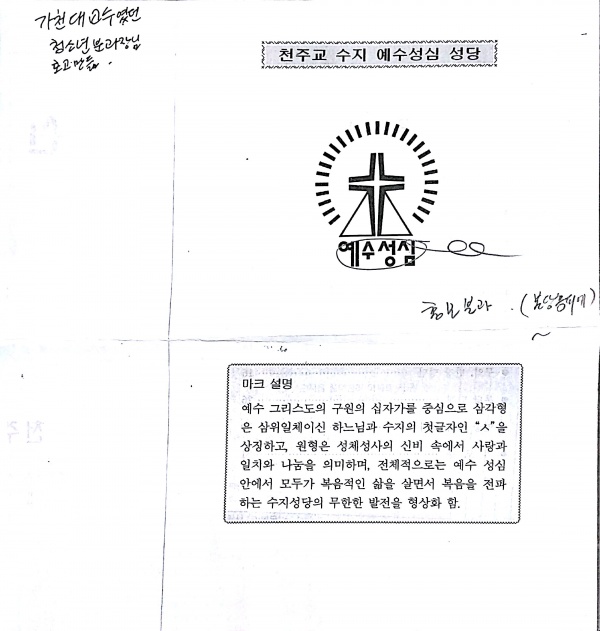 가천대 교수였던
청소년 분과장님
로고 만듦.
천주교 수지 예수성심 성당
예수성심
홍보분과
마크 설명
예수 그리스도의 구원의 십자가를 중심으로 삼각형
은 삼위일체이신 하느님과 수지의 첫글자인 “ㅅ”을
상징하고, 원형은 성체성사의 신비 속에서 사랑과
일치와 나눔을 의미하며, 전체적으로는 예수 성심
안에서 모두가 복음적인 삶을 살면서 복음을 전파
하는 수지성당의 무한한 발전을 형상화 함.